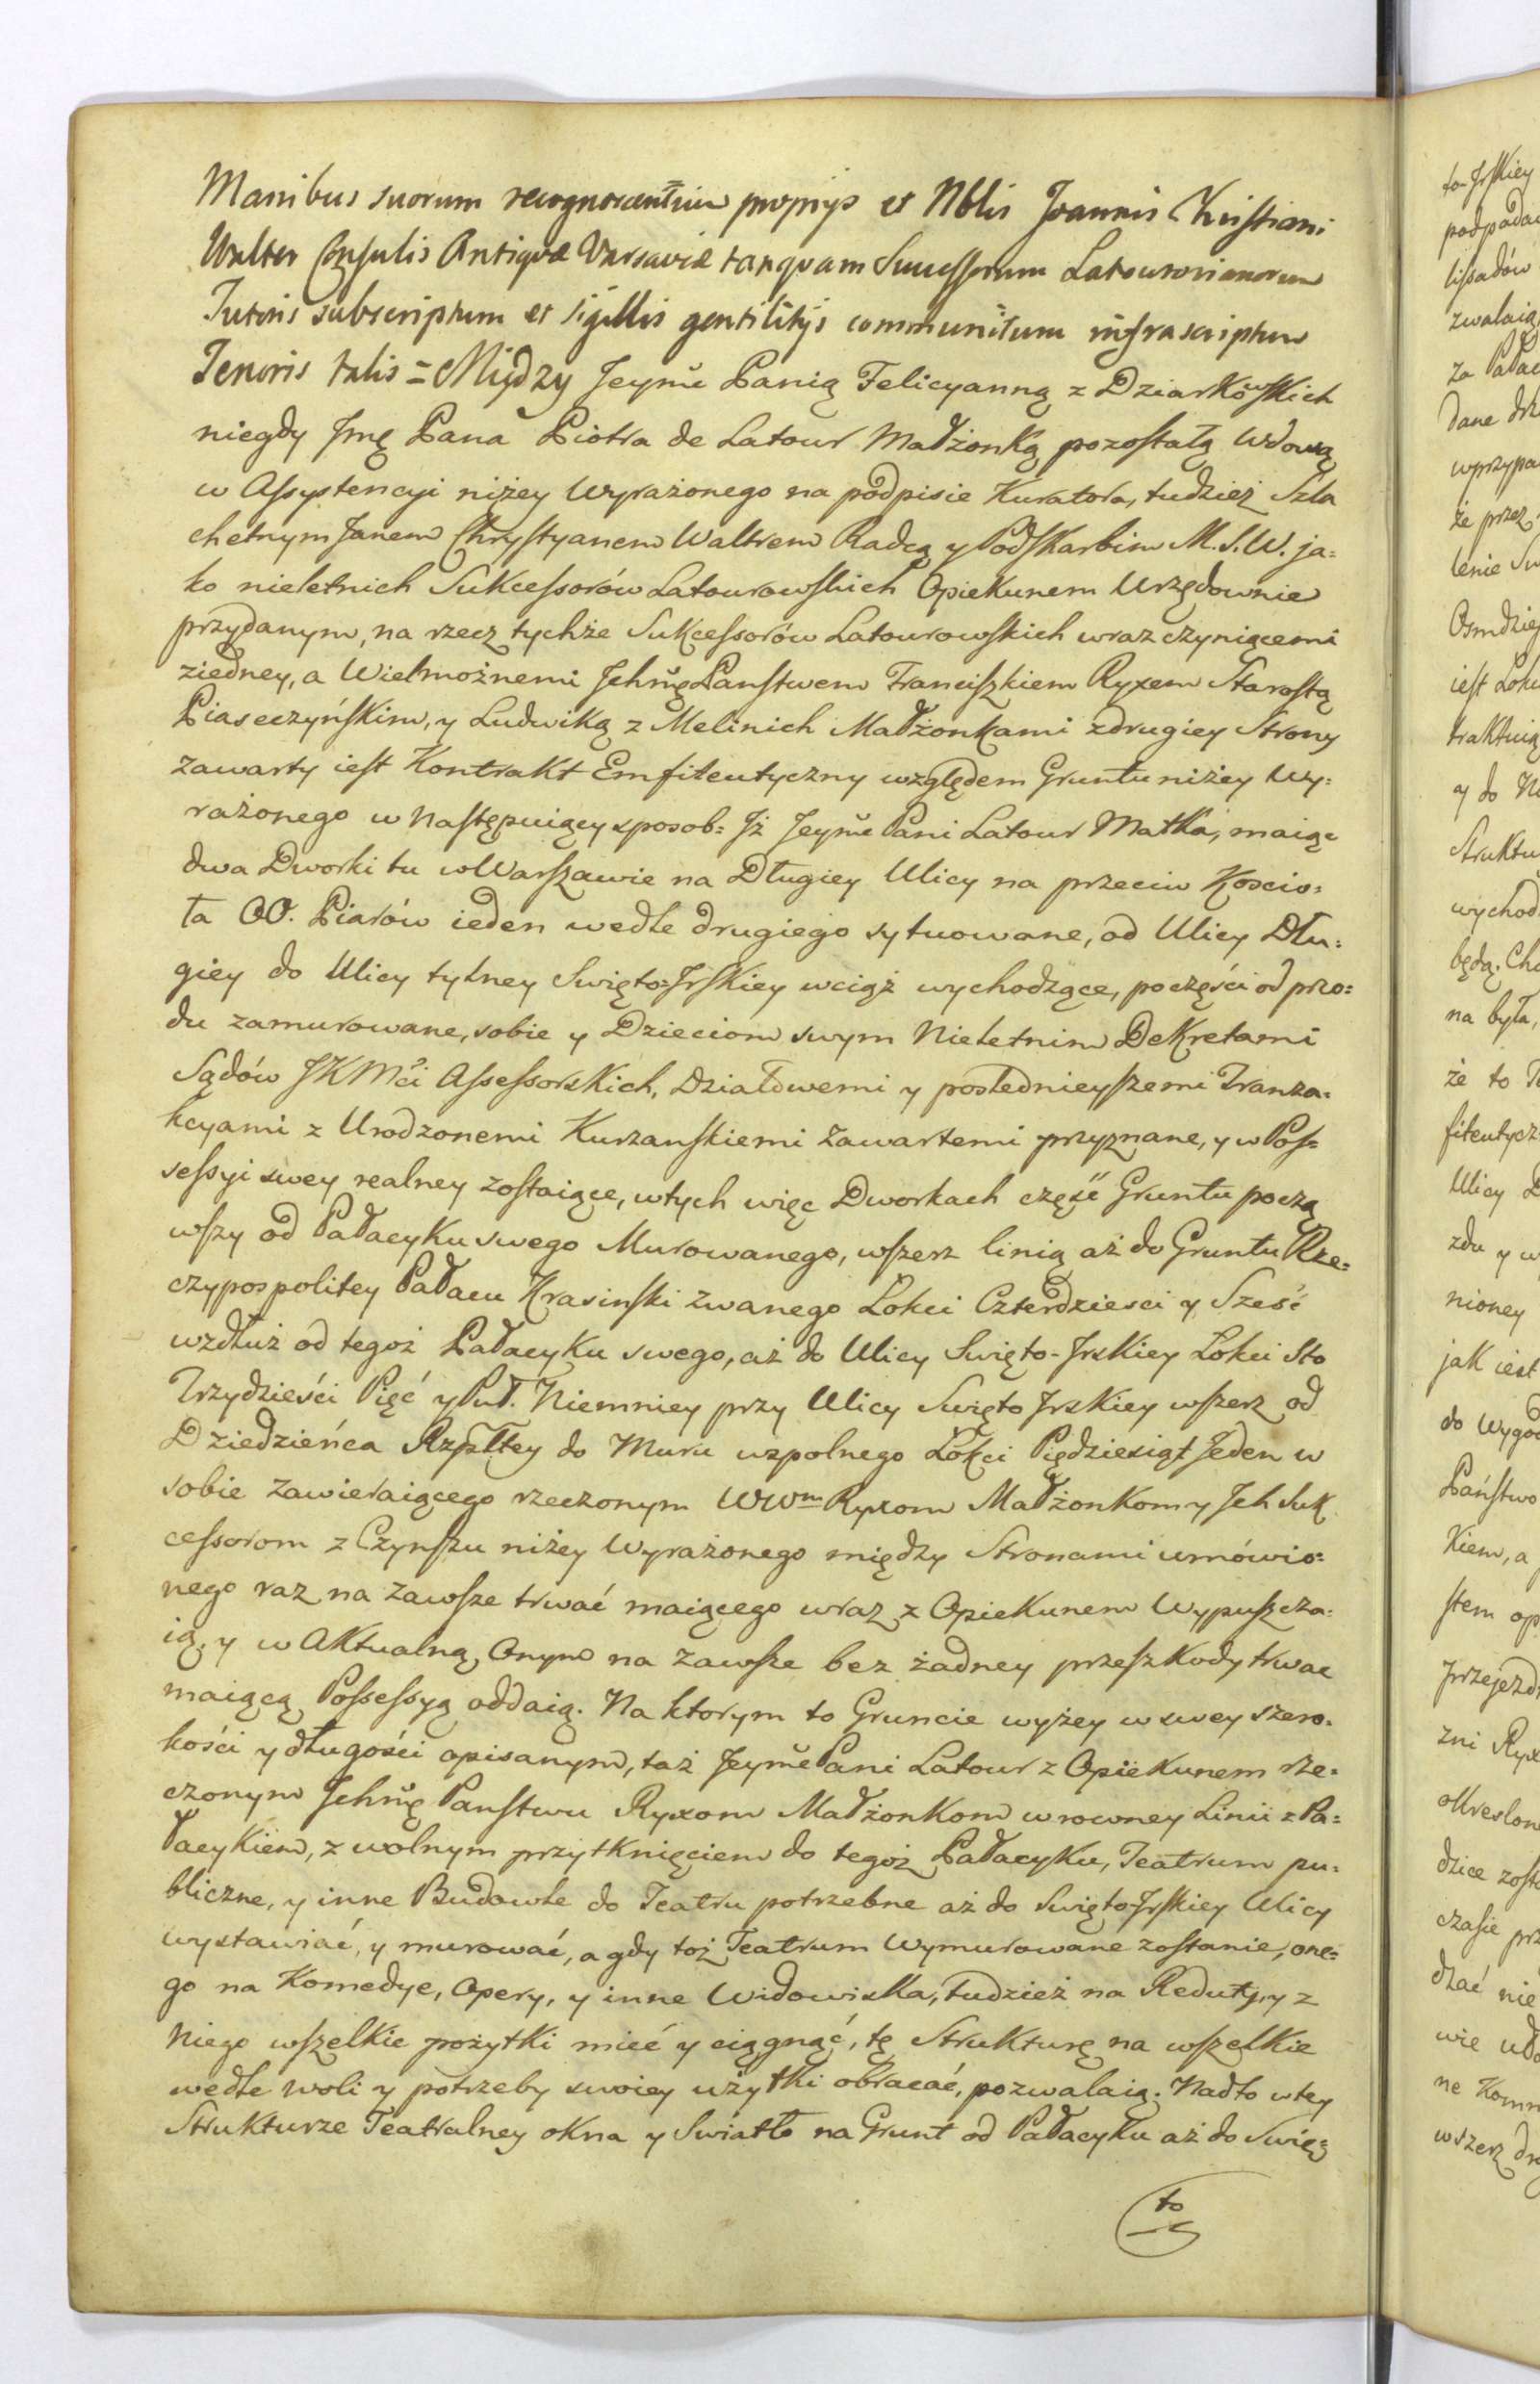 Manibus suorum recognoscentium proprijs et Nblis Joannis Christiani
Walter Consulis Antiquæ Varsaviæ tanquam Successorum Latourovianorum
Tutoris subscriptum et sigillis gentilitijs communitum infrascriptum
Tenoris talis = Między Jeymć Panią Felicyanną z Dziarkowskich
niegdy Jmć Pana Piotra de Latour Małżonką pozostałą Wdową
w Assystencyi niżey Wyrażonego na podpisie Kuratora, tudzież Szla
chetnym Janem Chrystyanem Waltrem Radcą y Podskarbim M.S.W. ja=
ko nieletnich Sukcessorów Latourowskich Opiekunem Urzędownie
przydanym, na rzecz tychże Sukcessorów Latourowskich wraz czyniącemi
ziedney, a Wielmożnemi Jchmć Panstwem Franciszkiem Ryxem Starostą
Piaseczyńskim, y Ludwiką z Melinich Małżonkami zdrugiey Strony
zawarty iest Kontrakt Emfiteutyczny względem Gruntu niżey Wy=
rażonego w Następuiący sposob= Jż Jeymć Pani Latour Matka, maiąc
dwa Dworki tu w Warszawie na Długiey Ulicy na przeciw Koscio=
ła OO. Piarów ieden wedle drugiego sytuowane, od Ulicy Dłu=
giey do Ulicy tylney Swięto=Jrskiey wciąż wychodzące, poczęści od przo=
du zamurowane, sobie y Dzieciom swym Nieletnim Dekretami
Sądów JKMći Assessorskich, Działowemi y poslednieyszemi Tranza=
kcyami z Urodzonemi Kurzanskiemi zawartemi przyznane, y w Pos=
sessyi swey realney zostaiące, wtych więc Dworkach część Gruntu począ
wszy od Pałacyku swego Murowanego, wszerz linią aż do Gruntu Rze=
czypospolitey Pałacu Krasinski zwanego Lokci Czterdziesci y Sześć
wzdłuż od tegoż Pałacyku swego, aż do Ulicy Swięto-Jrskiey Lokci Sto
Trzydzieści Pięć y Puł. Niemniey przy Ulicy Swięto Jrskiey wszerz od
Dziedzieńca Rzpltey do Muru wspolnego Lokci Piędziesiąt Jeden w
sobie zawieraiącego rzeczonym WWm Ryxom Małżonkom y Jch Suk
cessorom z Czynszu niżey Wyrażonego między Stronami umówio=
nego raz na zawsze trwać maiącego wraz z Opiekunem Wypuszcza=
ią, y w Aktualną Onym na zawsze bez żadney przeszkody trwac
maiącą Possessyą oddaią. Na ktorym to Gruncie wyżey w swey szero=
kości y długości opisanym, taż Jeymć Pani Latour z Opiekunem rze=
czonym Jchmć Panstwu Ryxom Małżonkom w rowney Linii z Pa=
łacykiem, z wolnym przytknięciem do tegoż Pałacyku, Teatrum pu=
bliczne, y inne Budowle do Teatru potrzebne aż do Swięto Jrskiey Ulicy
wystawiać, y murować, a gdy toż Teatrum Wymurowane zostanie, one=
go na Komedye, Opery, y inne Widowiska, tudzież na Reduty, y z
Niego wszelkie pożytki mieć y ciągnąć, tę Strukturę na wszelkie
wedle woli y potrzeby swoiey użytki obracać, pozwalaią. Nadto w tey
Strukturze Teatralney okna y Swiatło na Grunt od Pałacyku aż do Swię=
to